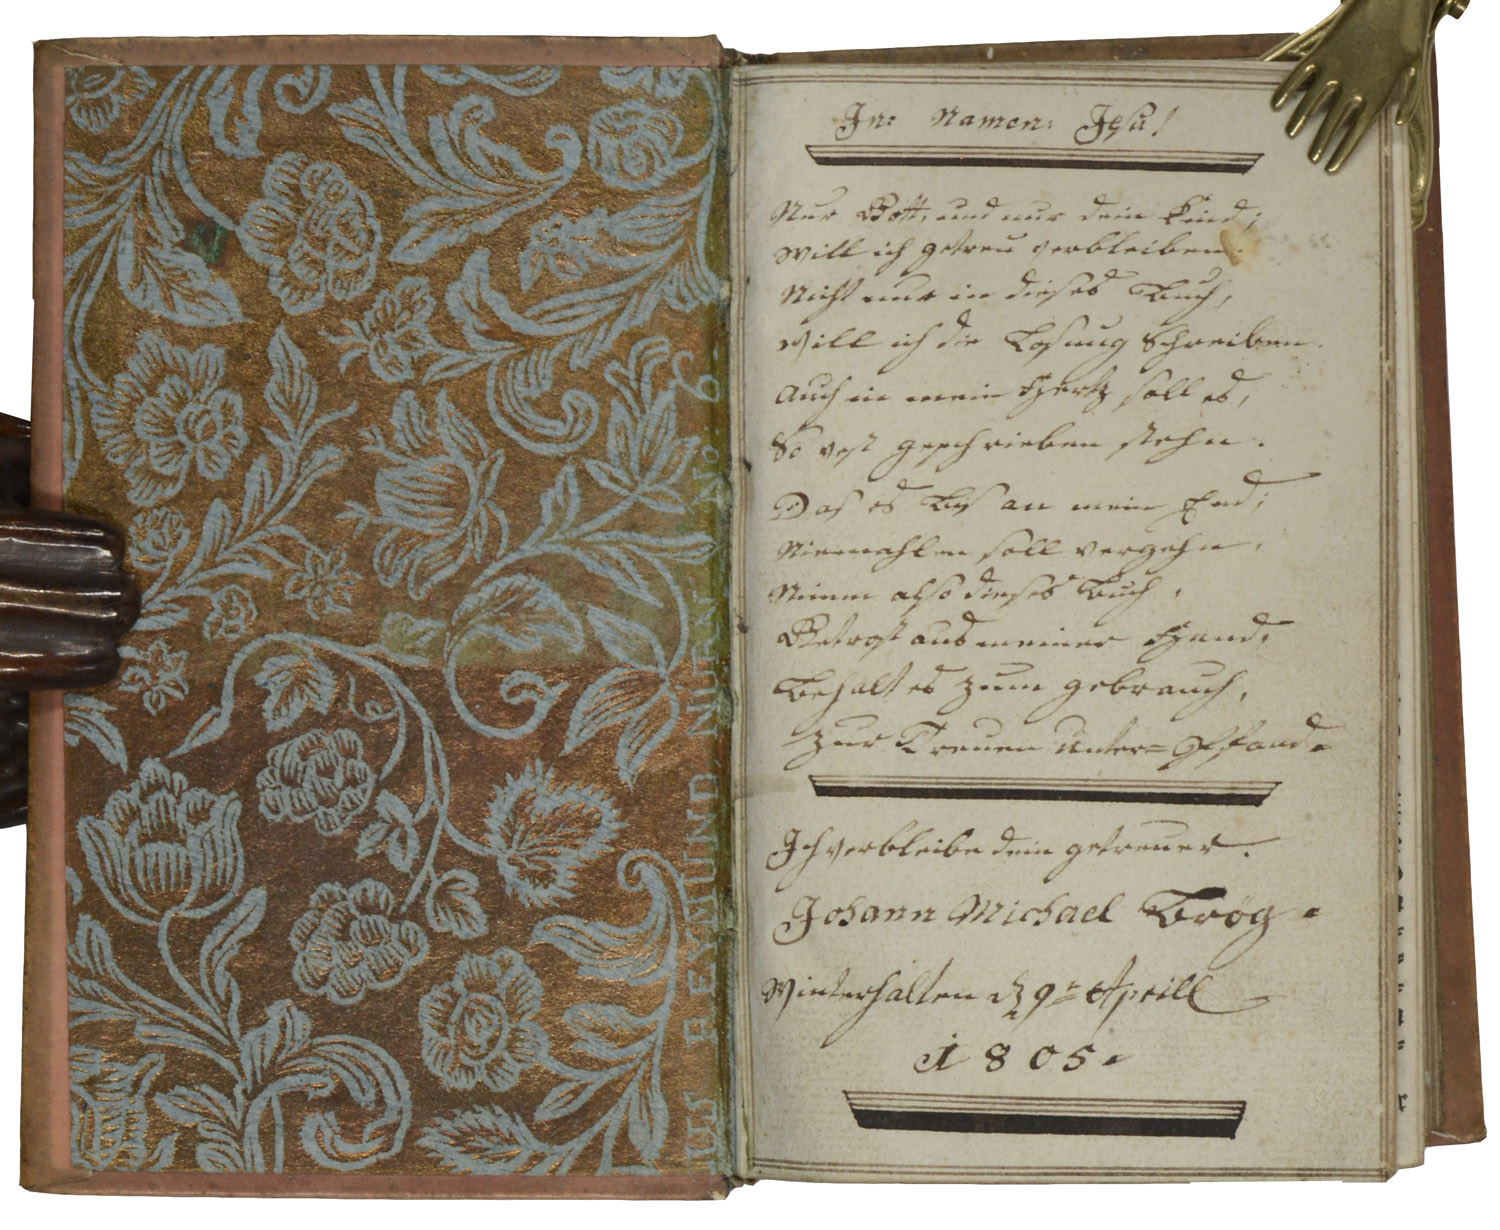 REYMUND, NÜRNB. No. 6
In: Namen: Jesu!
Nur Gott, und nur dein Kind;
Will ich getreu verbleiben.
Nicht nur in dieses Buch,
Will ich die Losung Schreiben.
Auch in mein Hertz soll es,
So vest geschrieben stehn.
Das es bis an mein End;
Niemahlen soll vergehn,
Nimm also dieses Buch,
Getrost aus meiner Hand,
Behalt es zum gebrauch,
Zur Treuen Unter=Pfand.
Ich verbleibe dein getreuer.
Johann Michael Brög.
Winterhalten 9 Aprill
1805.